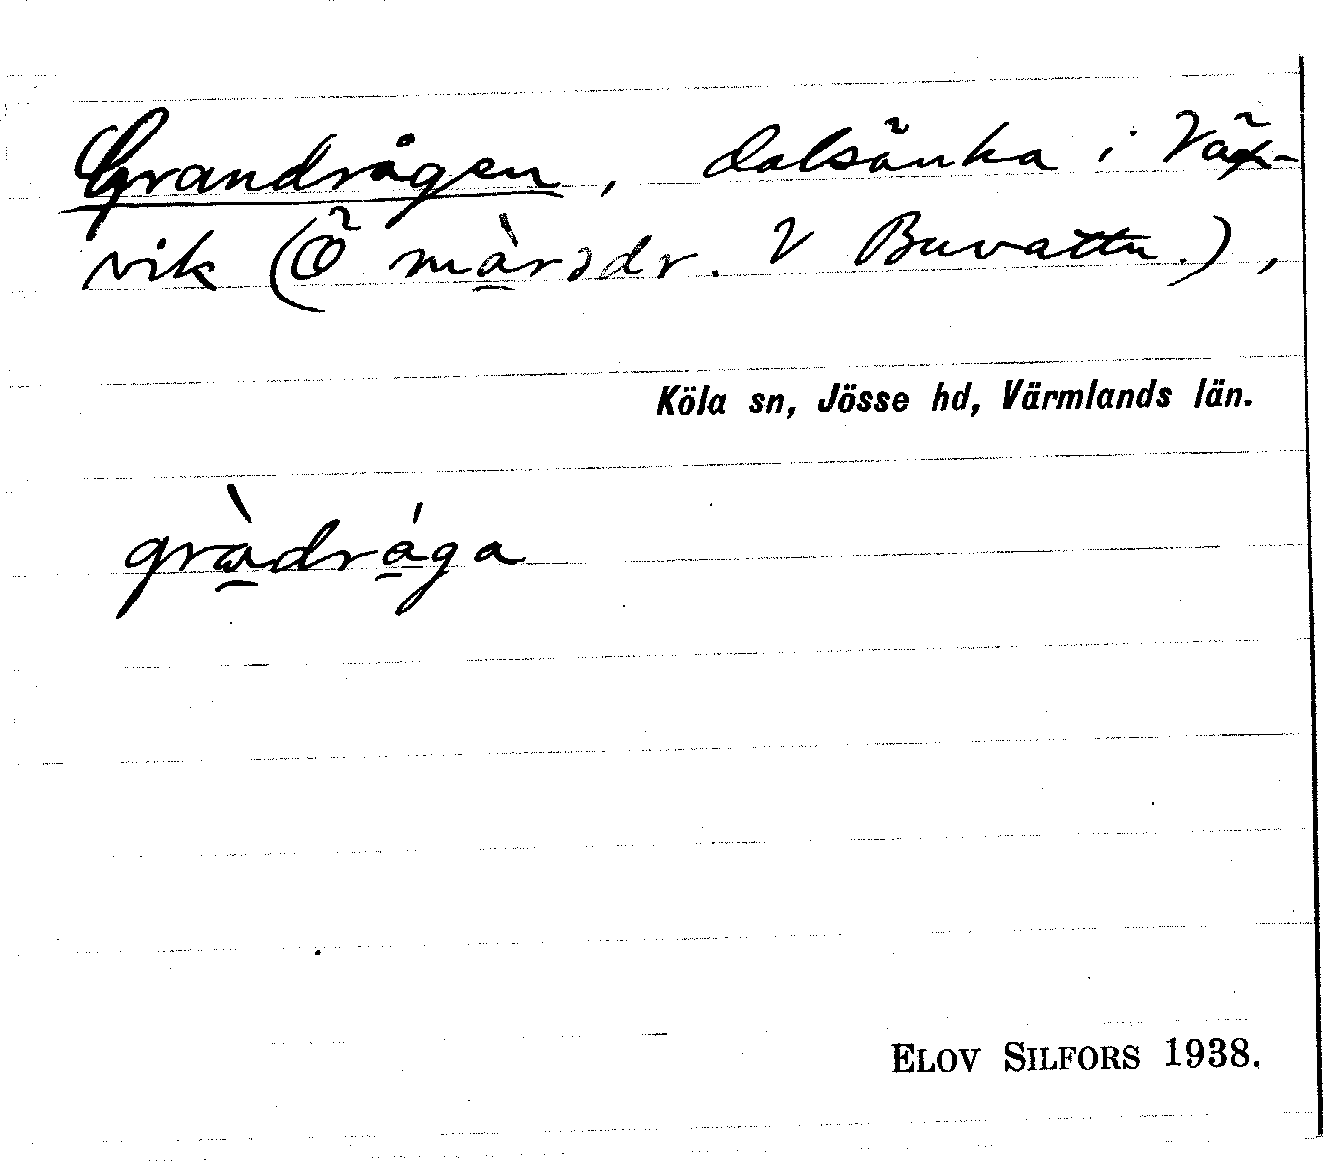 Grandrågen, dalsänka i Väx-
vik (Ö màrsdr. V Buvattn.),
Köla sn, Jösse hd, Värmlands län.
gràdrága
ELOV SILFORS 1938.